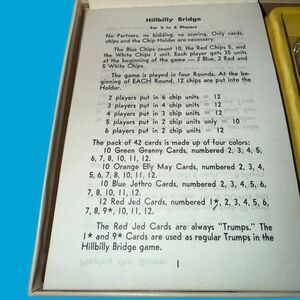 Hillbilly Bridge
For 2 to 6 Players
No Partners, no bidding, no scoring. Only cards,
chips and the Chip Holder are necessary.
The Blue Chips count 10, the Red Chips 5, and
the White Chips 1 unit. Each player gets 35 units
at the beginning of the game — 2 Blue, 2 Red and
5 White Chips.
The game is played in four Rounds. At the be-
ginning of EACH Round, 12 chips are put into the
Holder.
2 players put in 6 chip units = 12
3 players put in 4 chip units = 12
4 players put in 3 chip units = 12
5 players put in 2 chip units only = 10
6 players put in 2 chip units = 12
The pack of 42 cards is made up of four colors:
10 Green Granny Cards, numbered 2, 3, 4, 5,
6, 7, 8, 10, 11, 12.
10 Orange Elly May Cards, numbered 2, 3, 4,
5, 6, 7, 8, 10, 11, 12.
10 Blue Jethro Cards, numbered 2, 3, 4, 5, 6,
7, 8, 10, 11, 12.
12 Red Jed Cards, numbered 1*, 2, 3, 4, 5, 6,
7, 8, 9*, 10, 11, 12.
The Red Jed Cards are always "Trumps." The
1* and 9* Cards are used as regular Trumps in the
Hillbilly Bridge game.
1